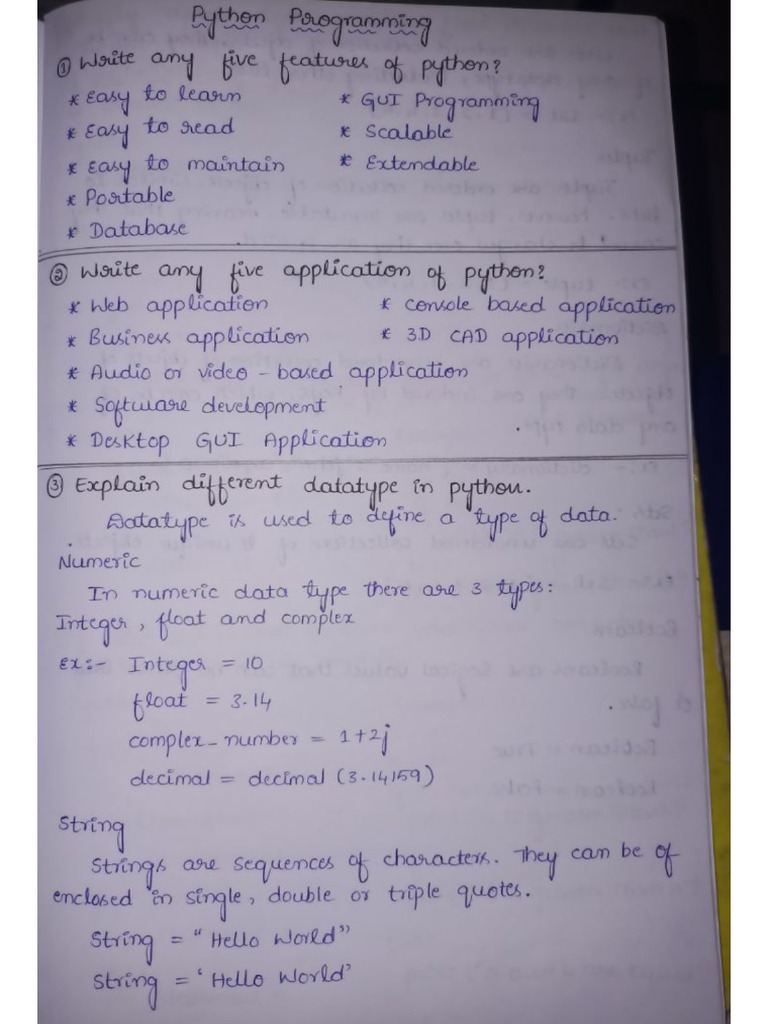 Python Programming
① Write any five features of python?
* Easy to learn
* GUI Programming
* Easy to read
* Scalable
* Easy to maintain
* Extendable
* Portable
* Database
② Write any five application of python?
* Web application
* console based application
* Business application
* 3D CAD application
* Audio or video - based application
* Software development
* Desktop GUI Application
③ Explain different datatype in python.
Datatype is used to define a type of data.
Numeric
In numeric data type there are 3 types:
Integer, float and complex
Ex:- Integer = 10
float = 3.14
complex_number = 1+2j
decimal = decimal (3.14159)
String
Strings are sequences of characters. They can be of
enclosed in single, double or triple quotes.
String = "Hello World"
String = 'Hello World'